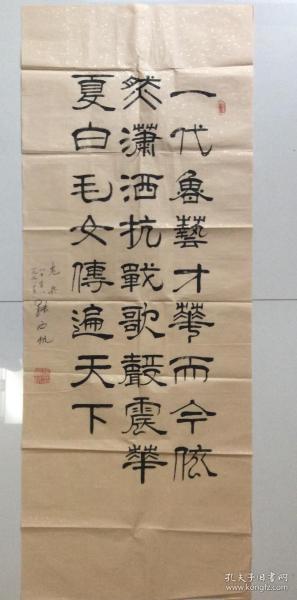 一代魯藝才華而今依
然瀟洒抗戰歌聲震華
夏白毛女傳遍天下
老兵
孔夫子旧书网
www.kongfz.com